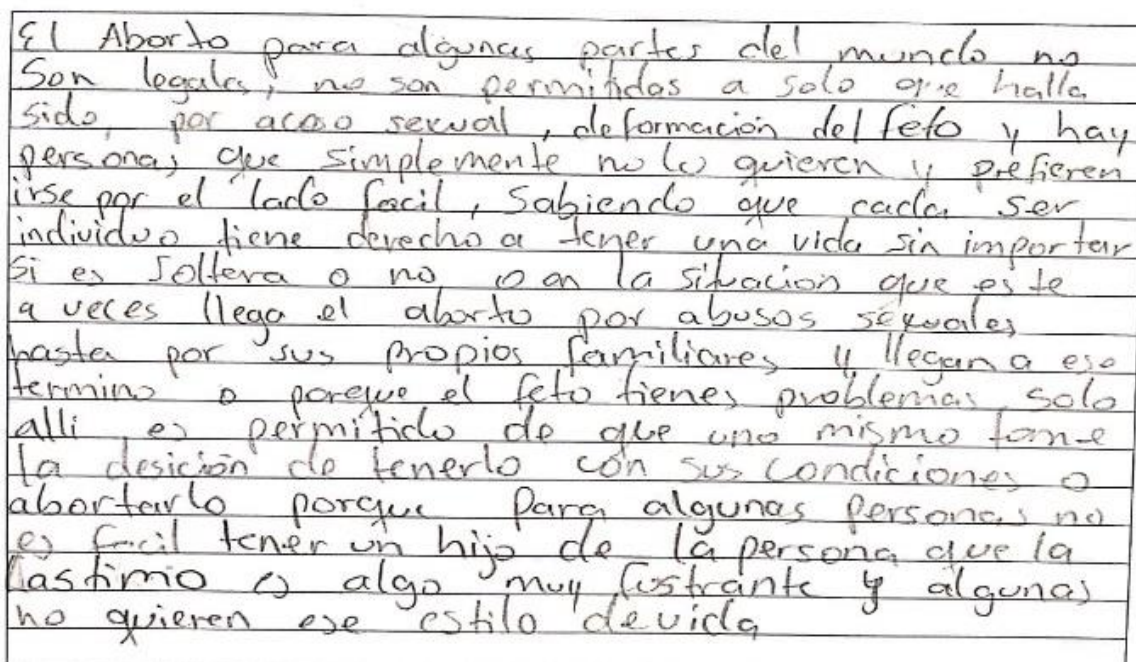 El Aborto para algunas partes del mundo no
Son legales, no son permitidas a solo que halla
sido, por acoso sexual, deformación del feto y hay
personas que simplemente no lo quieren y prefieren
irse por el lado facil, Sabiendo que cada ser
individuo tiene derecho a tener una vida sin importar
si es soltera o no, o en la situacion que este
a veces llega el aborto por abusos sexuales
hasta por sus propios familiares y llegan a ese
termino o porque el feto tienes problemas solo
alli es permitido de que uno mismo tome
la desición de tenerlo con sus condiciones o
abortarlo porque para algunas personas no
es facil tener un hijo de la persona que la
lastimo es algo muy fustrante y algunas
no quieren ese estilo de vida